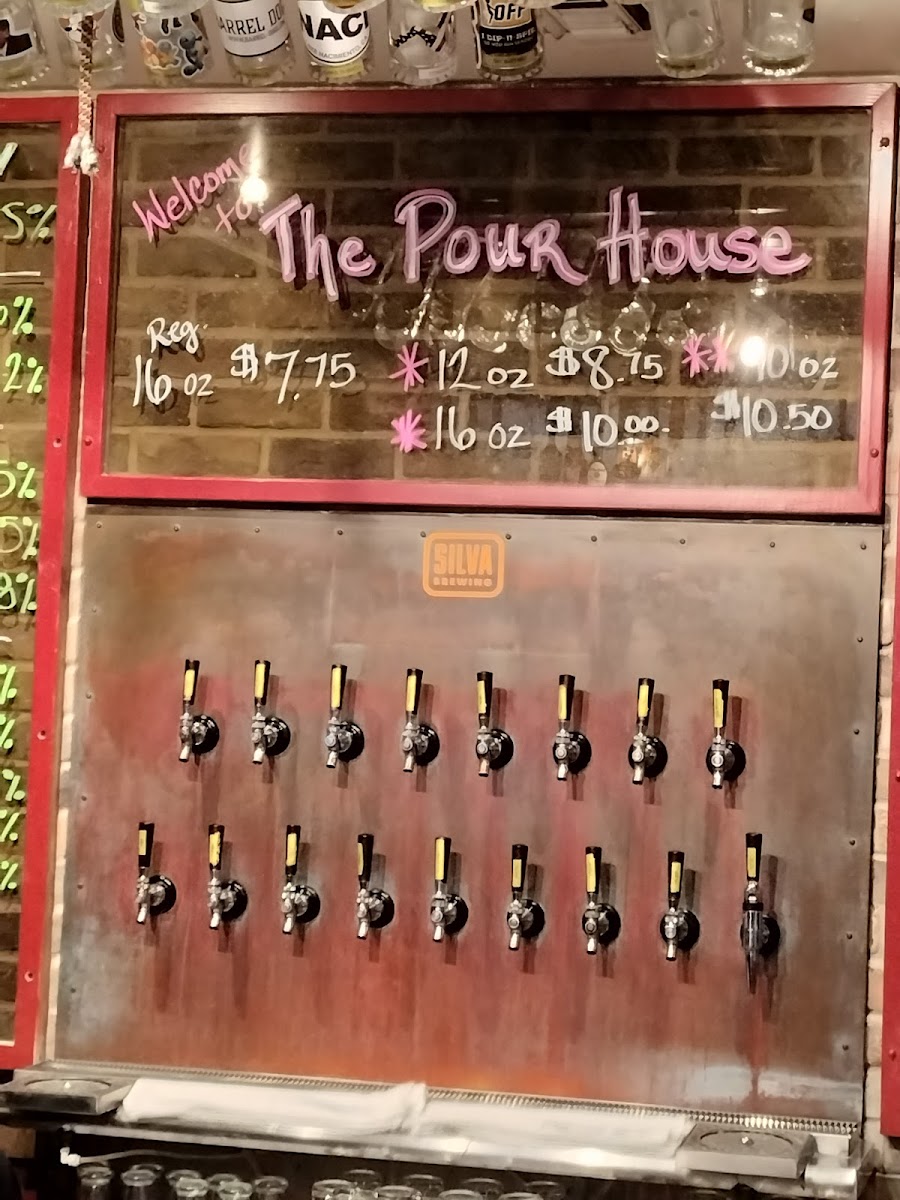 BARREL DO
NAC
OFF
SIP-N-SPI
Welcome
to
The Pour House
Reg.
16 oz $7.75
* 12 oz $8.75
* 16 oz $10.00
** 10 oz
$10.50
5%
0%
2%
5%
5%
8%
%
%
%
%
%
SILVA
BREWING